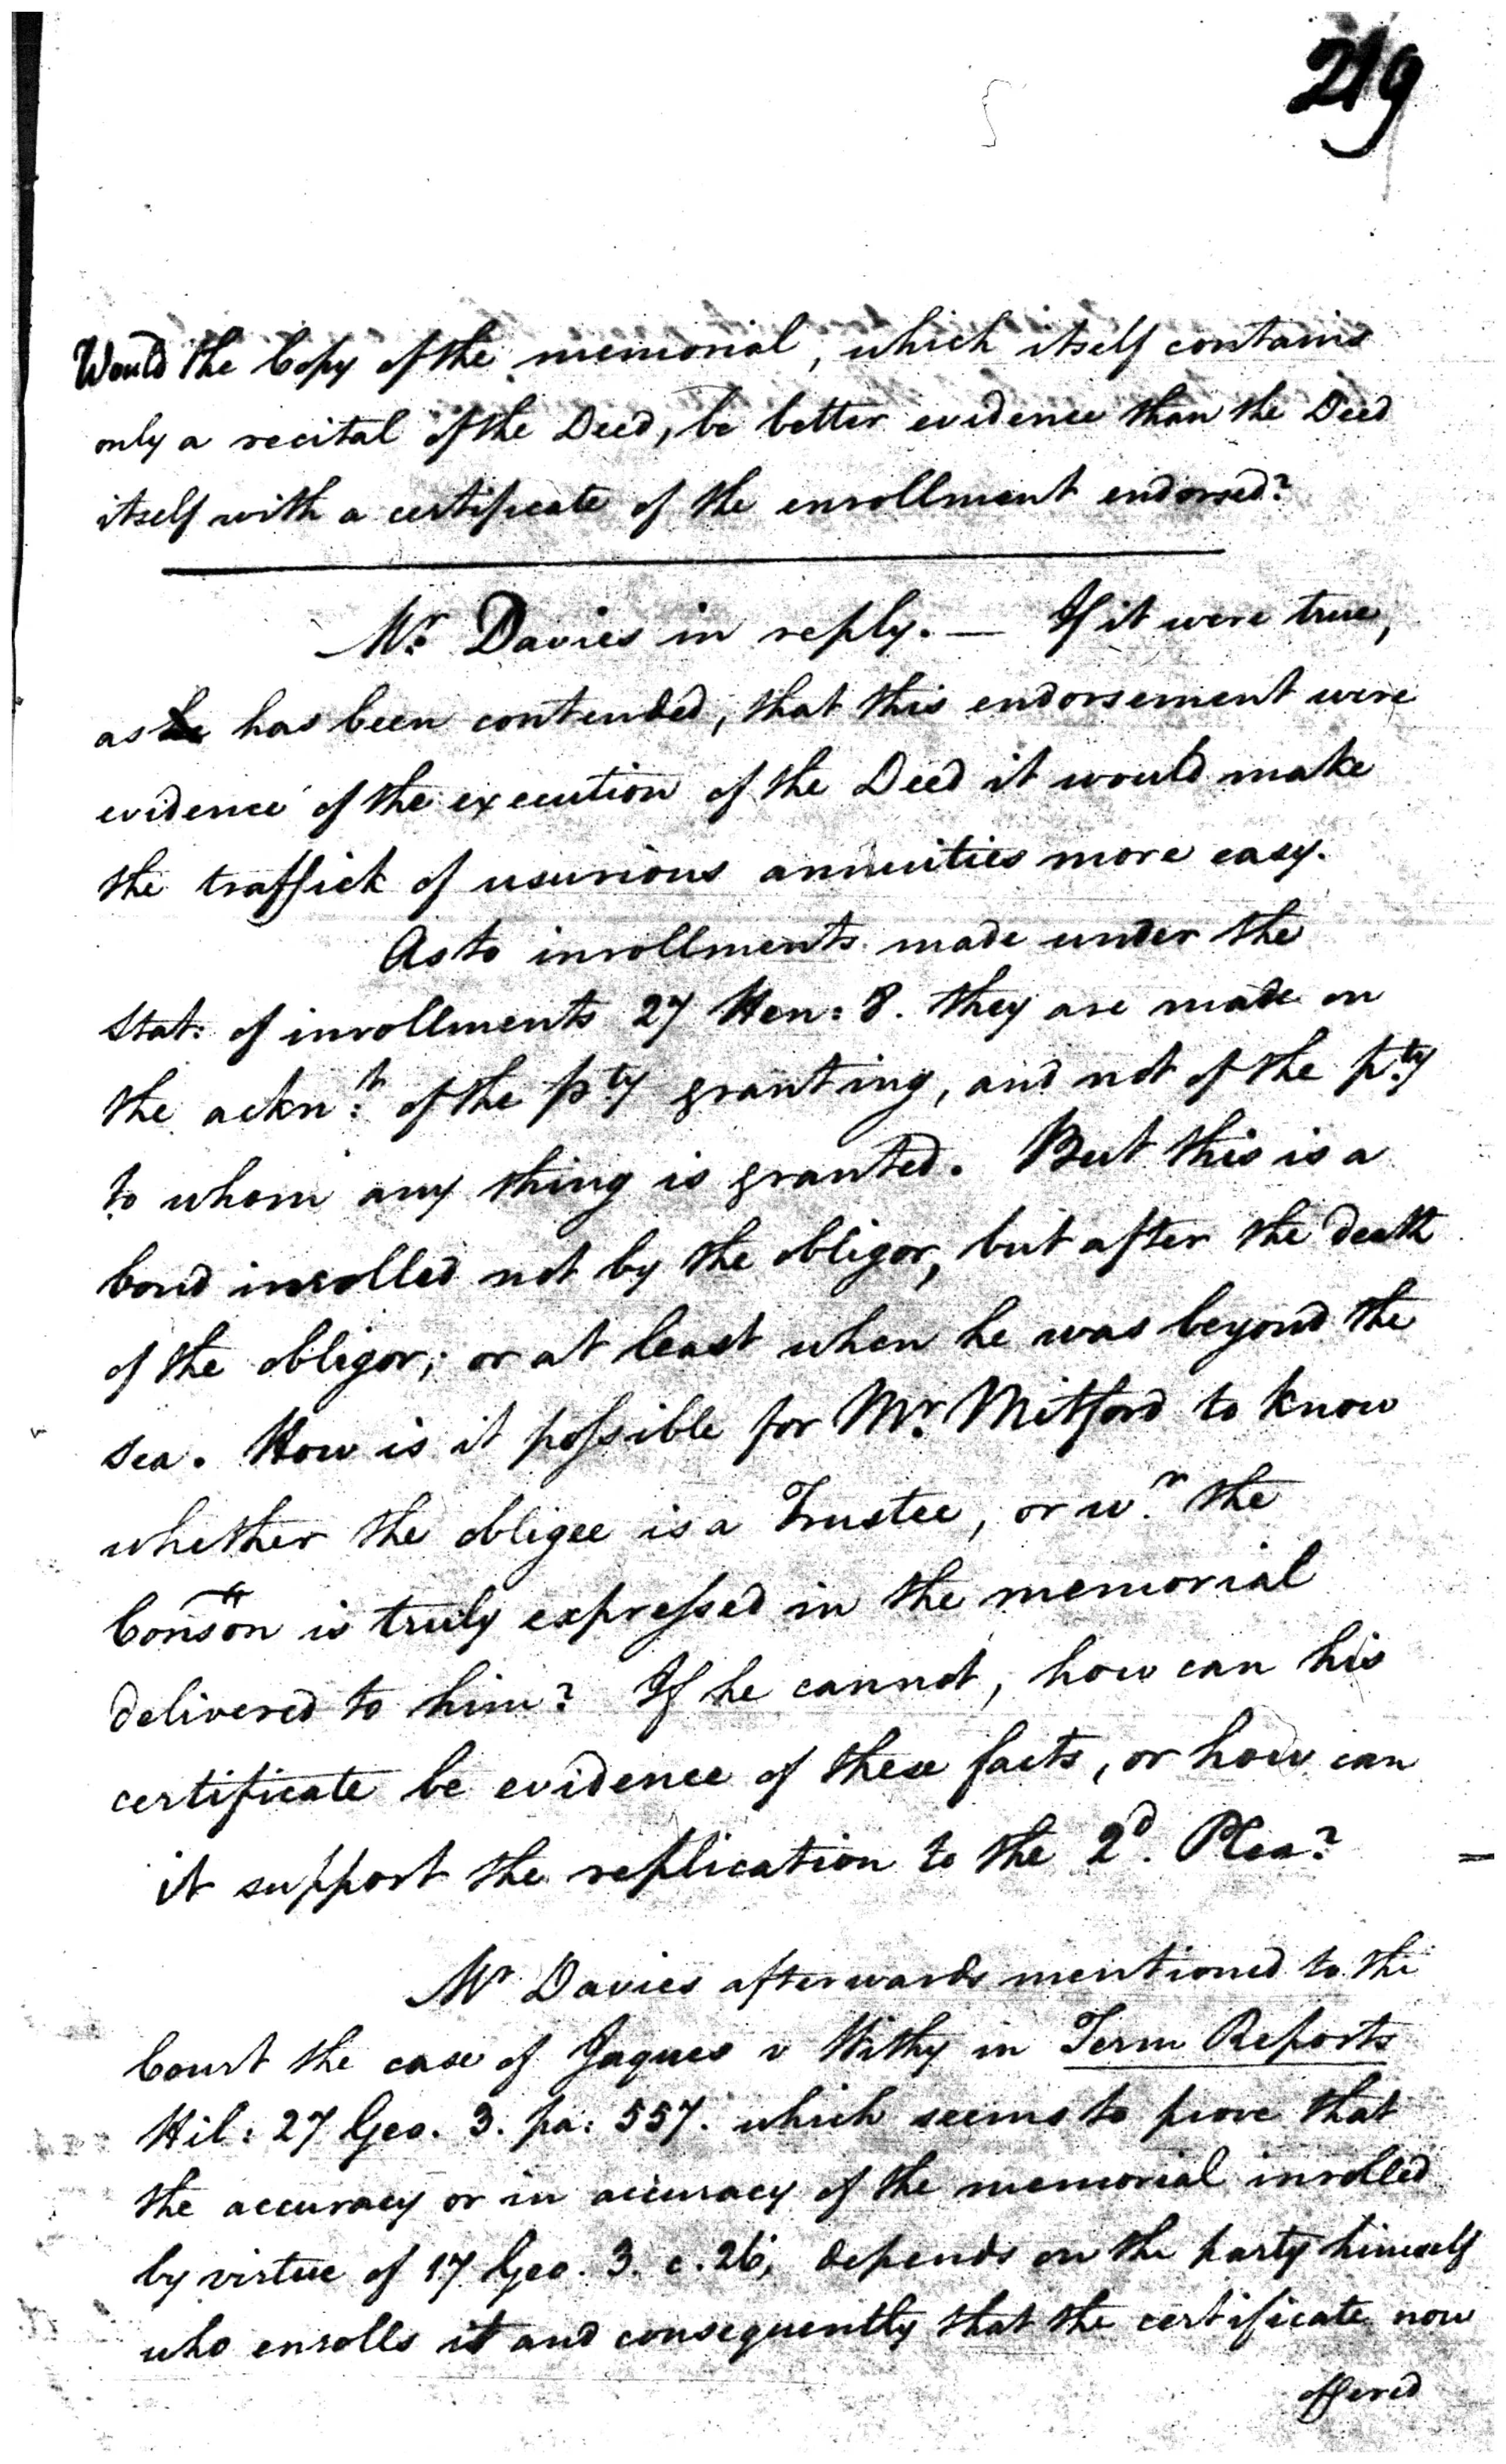 219
Would the Copy of the memorial, which itself contains
only a recital of the Deed, be better evidence than the Deed
itself with a certificate of the enrollment endorsed?
Mr. Davies in reply. — If it were true,
as has been contended, that this endorsement were
evidence of the execution of the Deed it would make
the traffick of usurious annuities more easy.
As to inrollments made under the
Stat: of inrollments 27 Hen: 8. they are made on
the ackn:t of the pty granting, and not of the pty
to whom any thing is granted. But this is a
bond inrolled not by the obligor, but after the death
of the obligor; or at least when he was beyond the
sea. How is it possible for Mr. Mitford to know
whether the obligee is a Trustee, or wr. the
Conson is truly expressed in the memorial
delivered to him? If he cannot, how can his
certificate be evidence of these facts, or how can
it support the replication to the 2d. Plea?
Mr Davies afterwards mentioned to the
Court the case of Jaques v Withy in Term Reports
Hil: 27 Geo. 3. pa: 557. which seems to prove that
the accuracy or in accuracy of the memorial inrolled
by virtue of 17 Geo. 3. c. 26, depends on the party himself
who enrolls it and consequently that the certificate now
offered